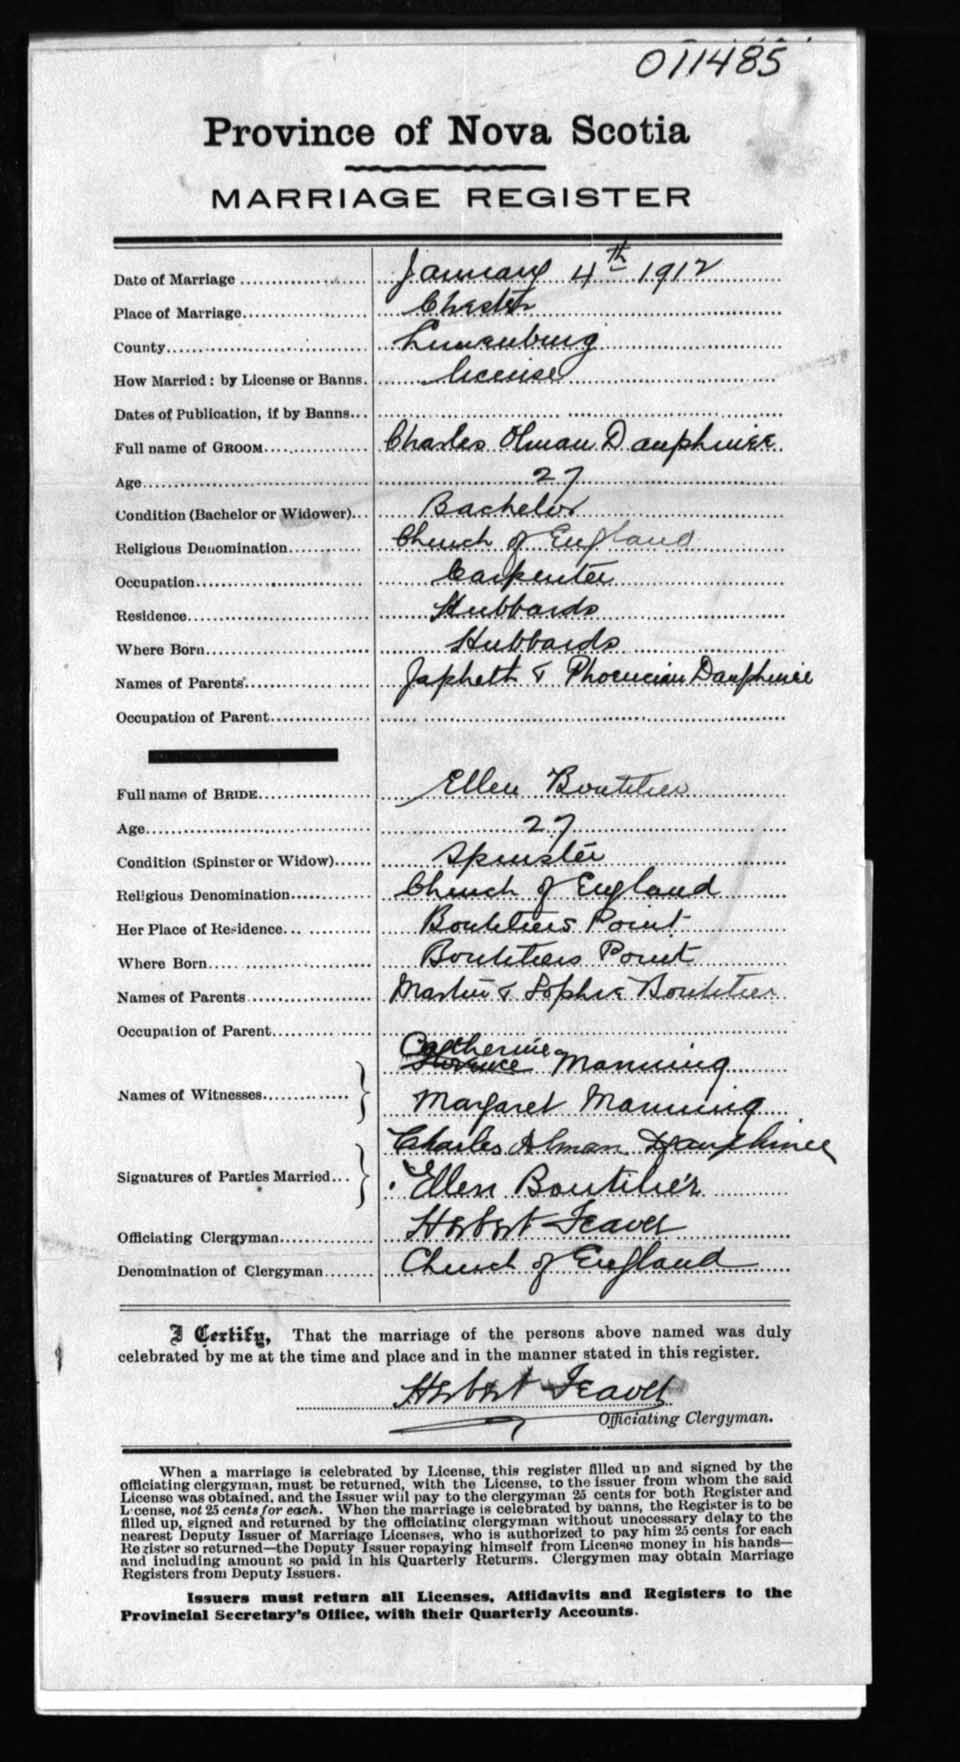 011485
Province of Nova Scotia
MARRIAGE REGISTER
Date of Marriage January 4th 1912
Place of Marriage Chester
County Lunenburg
How Married: by License or Banns. license
Dates of Publication, if by Banns
Full name of GROOM Charles Olman Dauphinee
Age 27
Condition (Bachelor or Widower) Bachelor
Religious Denomination Church of England
Occupation Carpenter
Residence Hubbards
Where Born Hubbards
Names of Parents Japheth & Phoenician Dauphinee
Occupation of Parent
Full name of BRIDE Ellen Boutilier
Age 27
Condition (Spinster or Widow) Spinster
Religious Denomination Church of England
Her Place of Residence Boutiliers Point
Where Born Boutiliers Point
Names of Parents Martin & Sophie Boutilier
Occupation of Parent
Names of Witnesses Catherine Florence Manning
Margaret Manning
Signatures of Parties Married Charles Alman Dauphinee
Ellen Boutilier
Officiating Clergyman Herbert Feaver
Denomination of Clergyman Church of England
I Certify, That the marriage of the persons above named was duly
celebrated by me at the time and place and in the manner stated in this register.
Herbert Feaver
Officiating Clergyman.
When a marriage is celebrated by License, this register filled up and signed by the
officiating clergyman, must be returned, with the License, to the issuer from whom the said
License was obtained, and the Issuer will pay to the clergyman 25 cents for both Register and
License, not 25 cents for each. When the marriage is celebrated by banns, the Register is to be
filled up, signed and returned by the officiating clergyman without unnecessary delay to the
nearest Deputy Issuer of Marriage Licenses, who is authorized to pay him 25 cents for each
Register so returned—the Deputy Issuer repaying himself from License money in his hands—
and including amount so paid in his Quarterly Returns. Clergymen may obtain Marriage
Registers from Deputy Issuers.
Issuers must return all Licenses, Affidavits and Registers to the
Provincial Secretary's Office, with their Quarterly Accounts.